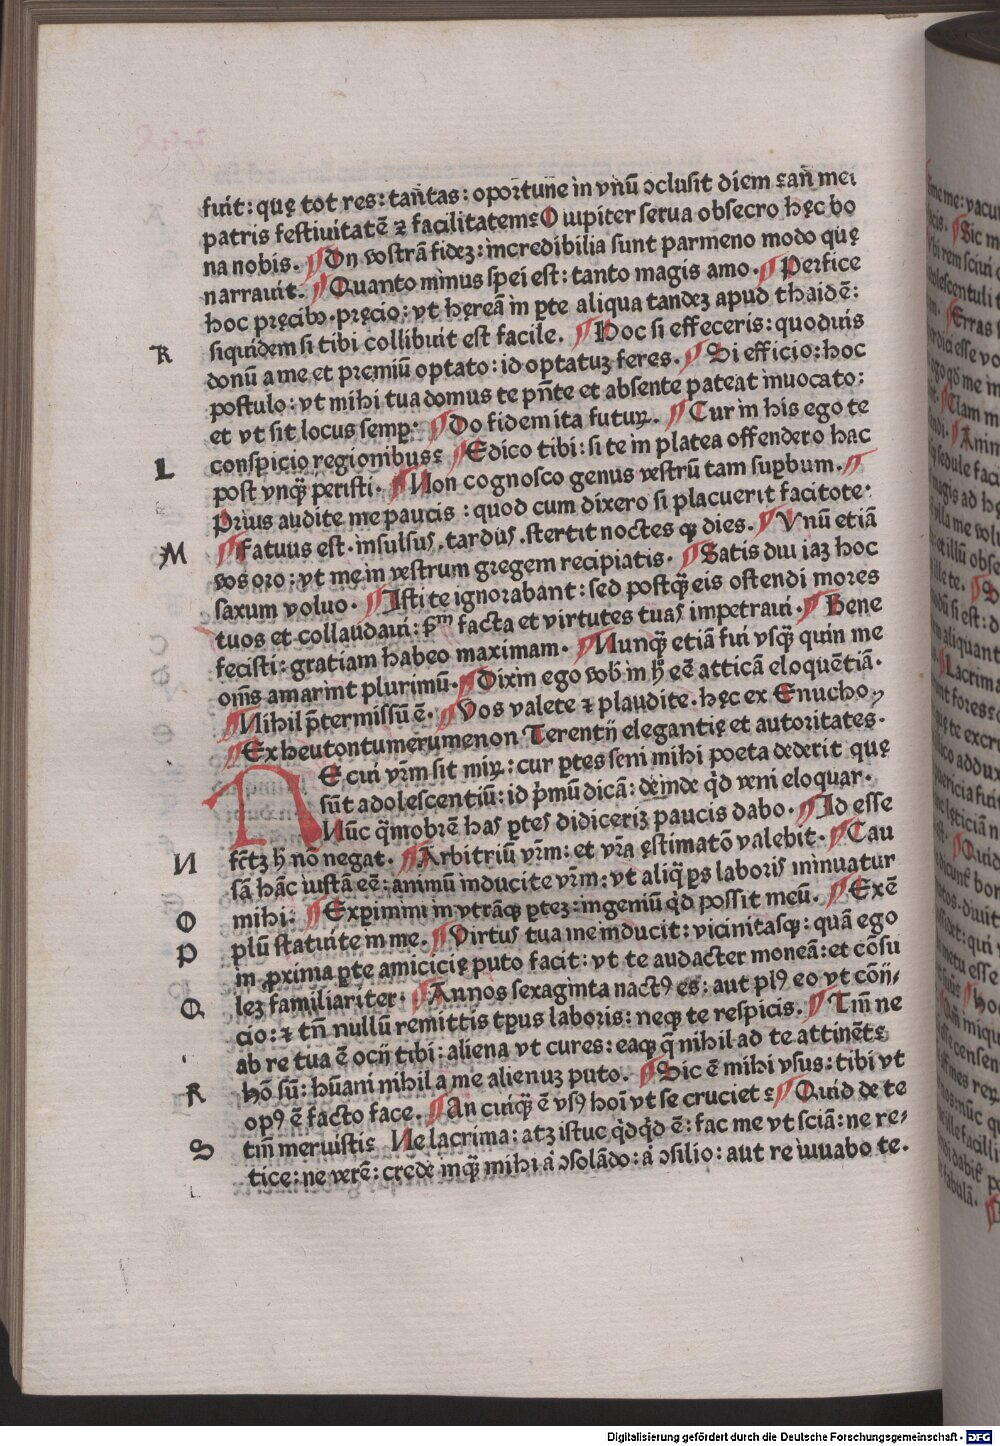 fuit: quę tot res: tan̄tas: oportune in vnū ↄclusit diem Ꝛ an̄ mei
patris festiuitatē ⁊ facilitatem⸵ O iupiter serua obsecro hęc bo
na nobis. ¶ Dn vostrā fidez: incredibilia sunt parmeno modo quę
narrauit. ¶ Quanto minus spei est: tanto magis amo. ¶ Perfice
hoc pręcibꝰ. pręcio: vt hereā in ꝑte aliqua tandez apud thaidē:
R
siquidem si tibi collibuit est facile. ¶ Hoc si effeceris: quoduis
donū a me et premiū optato: id optatuz feres. ¶ Si efficio: hoc
postulo: vt mihi tua domus te pn̄te et absente pateat inuocato:
et vt sit locus semꝑ. ¶ Do fidem ita futuꝝ. ¶ Cur in his ego te
L
conspicio regionibus⸵ ¶ Edico tibi: si te in platea offendero hac
post vnqꝫ peristi. ¶ Non cognosco genus vestrū tam suꝑbum. ¶
Prius audite me paucis: quod cum dixero si placuerit facitote:
M
¶ Fatuus est. insulsus. tardus. stertit noctes qꝫ dies. ¶ Vnū etiā
vos oro: vt me in vestrum gregem recipiatis. ¶ Satis diu iaz hoc
saxum voluo. ¶ Isti te ignorabant: sed postqꝫ eis ostendi mores
tuos et collaudaui: ẜm facta et virtutes tuas impetraui. ¶ Bene
fecisti: gratiam habeo maximam. ¶ Nunqꝫ etiā fui vsqꝫ quin me
om̄s amarint plurimū. ¶ Dixin ego vob̄ in h̄ eē atticā eloquētiā.
¶ Nihil p̄termissū ē. ¶ Vos valete ⁊ plaudite. hęc ex Enucho
¶ Ex heutontumerumenon Terentij elegantię et autoritates.
NE cui vr̄m sit miꝝ: cur ꝑtes seni mihi poeta dederit quę
sūt adolescentiū: id p̄mū dicā: deinde qd̄ veni eloquar.
Nūc qͣmobrē has ꝑtes didiceriz paucis dabo. ¶ Id esse
N
fc̄tz h̄ nō negat. ¶ Arbitriū vr̄m: et vr̄a ęstimatō valebit. ¶ Cau
sā hāc iustā eē: animū inducite vr̄m: vt aliq̄ ꝑs laboris minuatur
O
mihi: ¶ Exꝑimini in vtrāqꝫ ꝑtez: ingeniū qd̄ possit meū. ¶ Exē
P
plū statuite in me. ¶ Virtus tua me inducit: vicinitasqꝫ: quā ego
in ꝓxima ꝑte amicicię puto facit: vt te audacter moneā: et cōsu
Q
lez familiariter. ¶ Annos sexaginta nactꝰ es: aut plꝰ eo vt cōij-
cio: ⁊ tn̄ nullū remittis tp̄us laboris: neqꝫ te respicis. ¶ Tm̄ ne
ab re tua ē ocij tibi: aliena vt cures: eaqꝫ q̄ nihil ad te attinēt⸵
R
hō sū: hūani nihil a me alienuz puto. ¶ Sic ē mihi vsus: tibi vt
opꝰ ē facto face. ¶ An cuiqꝫ ē vsꝰ hoī vt se cruciet⸵ ¶ Quid de te
S
tm̄ meruisti⸵ Ne lacrima: atz istuc qd̄qd̄ ē: fac me vt sciā: ne re-
tice: ne verē: crede inqꝫ mihi aī ↄsolādo: aī ↄsilio: aut re iuuabo te.
Digitalisierung gefördert durch die Deutsche Forschungsgemeinschaft - DFG